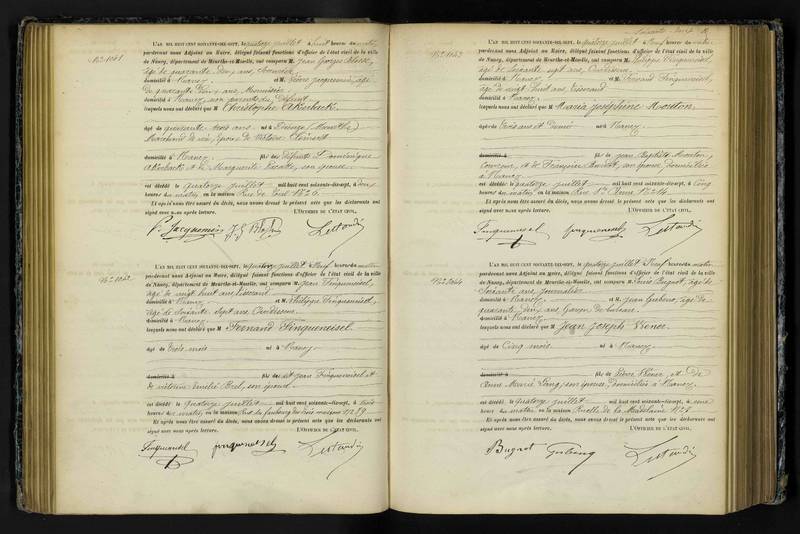 No 1041
L'AN MIL HUIT CENT SOIXANTE-DIX-SEPT, le quatorze juillet à huit heures du matin,
pardevant nous Adjoint au Maire, délégué faisant fonctions d'officier de l'état civil de la ville
de Nancy, département de Meurthe-et-Moselle, ont comparu M Jean Georges
âgé de quarante deux ans,
domicilié à Nancy, et M Pierre Jacquemin, âgé
de quarante deux ans, Menuisier,
domicilié à Nancy, non parents du Défunt,
lesquels nous ont déclaré que M Christophe Akerback,
âgé de quarante trois ans né à Dieuze (Meurthe)
Marchand de vin, époux de
domicilié à Nancy, fils de défunts Dominique
Akerback et de Marguerite son épouse
est décédé le quatorze juillet mil huit cent soixante-dix-sept, à deux
heures du matin, en la maison Rue de Toul No 20.
Et après nous être assuré du décès, nous avons dressé le présent acte que les déclarants ont
signé avec nous après lecture. L'OFFICIER DE L'ÉTAT CIVIL,
P. Jacquemin
No 1042
L'AN MIL HUIT CENT SOIXANTE-DIX-SEPT, le quatorze juillet à Neuf heures du matin
pardevant nous Adjoint au Maire, délégué faisant fonctions d'officier de l'état civil de la ville
de Nancy, département de Meurthe-et-Moselle, ont comparu M Jean Finqueneisel,
âgé de vingt huit ans, Tisserand
domicilié à Nancy et M Philippe Finqueneisel,
âgé de Soixante sept ans,
domicilié à Nancy.
lesquels nous ont déclaré que M Fernand Finqueneisel
âgé de trois mois né à Nancy
domicilié à fils de dit Jean Finqueneisel et
de son épouse
est décédé le quatorze juillet mil huit cent soixante-dix-sept, à trois
heures du matin, en la maison Rue du faubourg des trois maisons No 89.
Et après nous être assuré du décès, nous avons dressé le présent acte que les déclarants ont
signé avec nous après lecture. L'OFFICIER DE L'ÉTAT CIVIL,
No 1043
L'AN MIL HUIT CENT SOIXANTE-DIX-SEPT, le quatorze juillet à Neuf heures du matin
pardevant nous Adjoint au Maire, délégué faisant fonctions d'officier de l'état civil de la ville
de Nancy, département de Meurthe-et-Moselle, ont comparu M Philippe Finqueneisel,
âgé de Soixante sept ans,
domicilié à Nancy et M Finqueneisel,
âgé de vingt huit ans, Tisserand
domicilié à Nancy.
lesquels nous ont déclaré que M Maria Joséphine Mouton,
âgée de trois ans et demi née à Nancy
domicilié à fille de Jean Baptiste Mouton,
et de Françoise son épouse, domiciliés
à Nancy.
est décédée le quatorze juillet mil huit cent soixante-dix-sept, à cinq
heures du matin, en la maison Rue No 14.
Et après nous être assuré du décès, nous avons dressé le présent acte que les déclarants ont
signé avec nous après lecture. L'OFFICIER DE L'ÉTAT CIVIL,
No 1044
L'AN MIL HUIT CENT SOIXANTE-DIX-SEPT, le quatorze juillet à Neuf heures du matin
pardevant nous Adjoint au Maire, délégué faisant fonctions d'officier de l'état civil de la ville
de Nancy, département de Meurthe-et-Moselle, ont comparu M Louis Bugnot, âgé de
Soixante ans, Journalier
domicilié à Nancy, et M Jean âgé de
quarante deux ans, Garçon de bureau
domicilié à Nancy.
lesquels nous ont déclaré que M Jean Joseph Viener.
âgé de Cinq mois né à Nancy.
domicilié à fils de Pierre Viener, et de
Anne Marie Lang, son épouse, domiciliés à Nancy,
est décédé le quatorze juillet mil huit cent soixante-dix-sept, à une
heure du matin, en la maison Ruelle de la Madelaine No 9
Et après nous être assuré du décès, nous avons dressé le présent acte que les déclarants ont
signé avec nous après lecture. L'OFFICIER DE L'ÉTAT CIVIL,
Bugnot